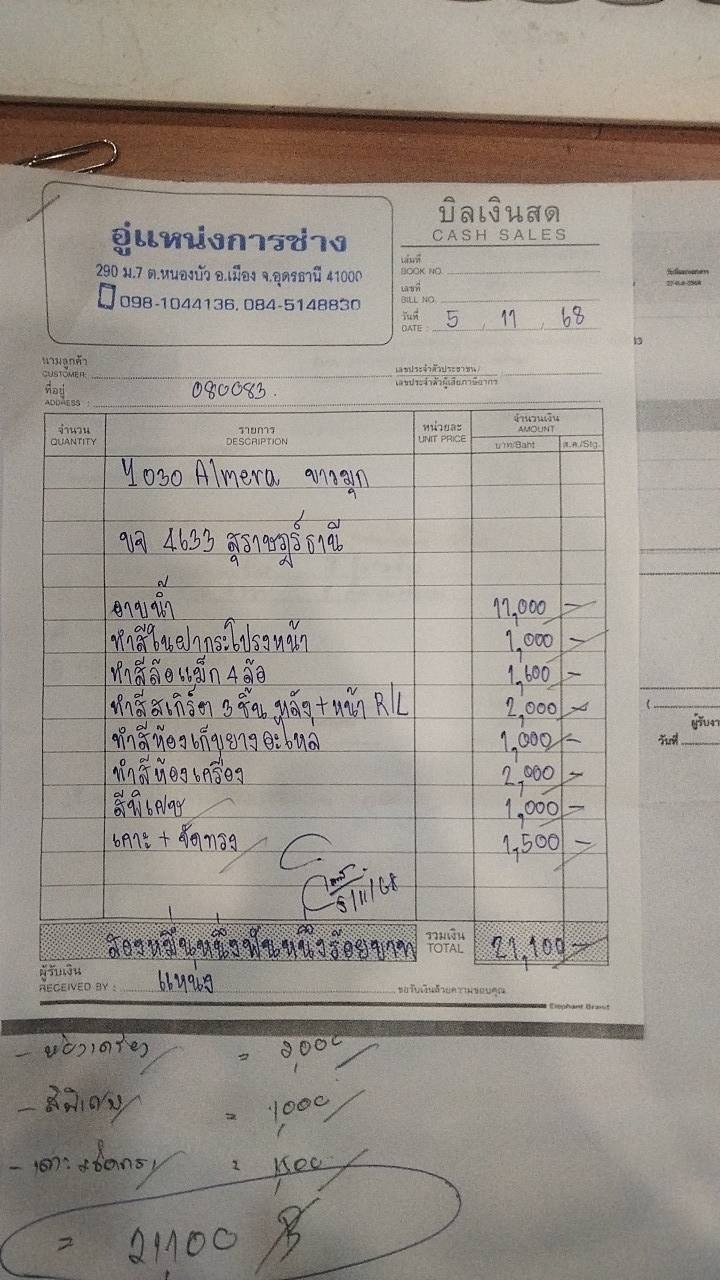 อู่แหน่งการช่าง
290 ม.7 ต.หนองบัว อ.เมือง จ.อุดรธานี 41000
098-1044136, 084-5148830
บิลเงินสด
CASH SALES
เล่มที่
BOOK NO.
เลขที่
BILL NO.
วันที่
DATE : 5 , 11 , 68
นามลูกค้า
CUSTOMER
เลขประจำตัวประชาชน/
เลขประจำตัวผู้เสียภาษีอากร
ที่อยู่
ADDRESS : 080083.
จำนวน รายการ หน่วยละ จำนวนเงิน
QUANTITY DESCRIPTION UNIT PRICE AMOUNT
บาท/Baht ส.ต./Stg.
Y030 Almera ขาวมุก
ขจ 4633 สุราษฎร์ธานี
อาบน้ำ 11,000 -
ทำสีในฝากระโปรงหน้า 1,000 -
ทำสีล้อแม็ก 4 ล้อ 1,600 -
ทำสีสเกิร์ต 3 ชิ้น หลัง + หน้า R/L 2,000 -
ทำสีห้องเก็บยางอะไหล 1,000 -
ทำสีห้องเครื่อง 2,000 -
สีพิเศษ 1,000 -
เคาะ + ขัดทรง 1,500 -
5/11/68
สองหมื่นหนึ่งพันหนึ่งร้อยบาท รวมเงิน TOTAL 21,100 -
ผู้รับเงิน
RECEIVED BY : แหน่ง ขอรับเงินด้วยความขอบคุณ
Elephant Brand
- ห้องเครื่อง = 2,000
- สีพิเศษ = 1,000
= 1,500
= 21,100 ฿
ผู้รับงา
วันที่